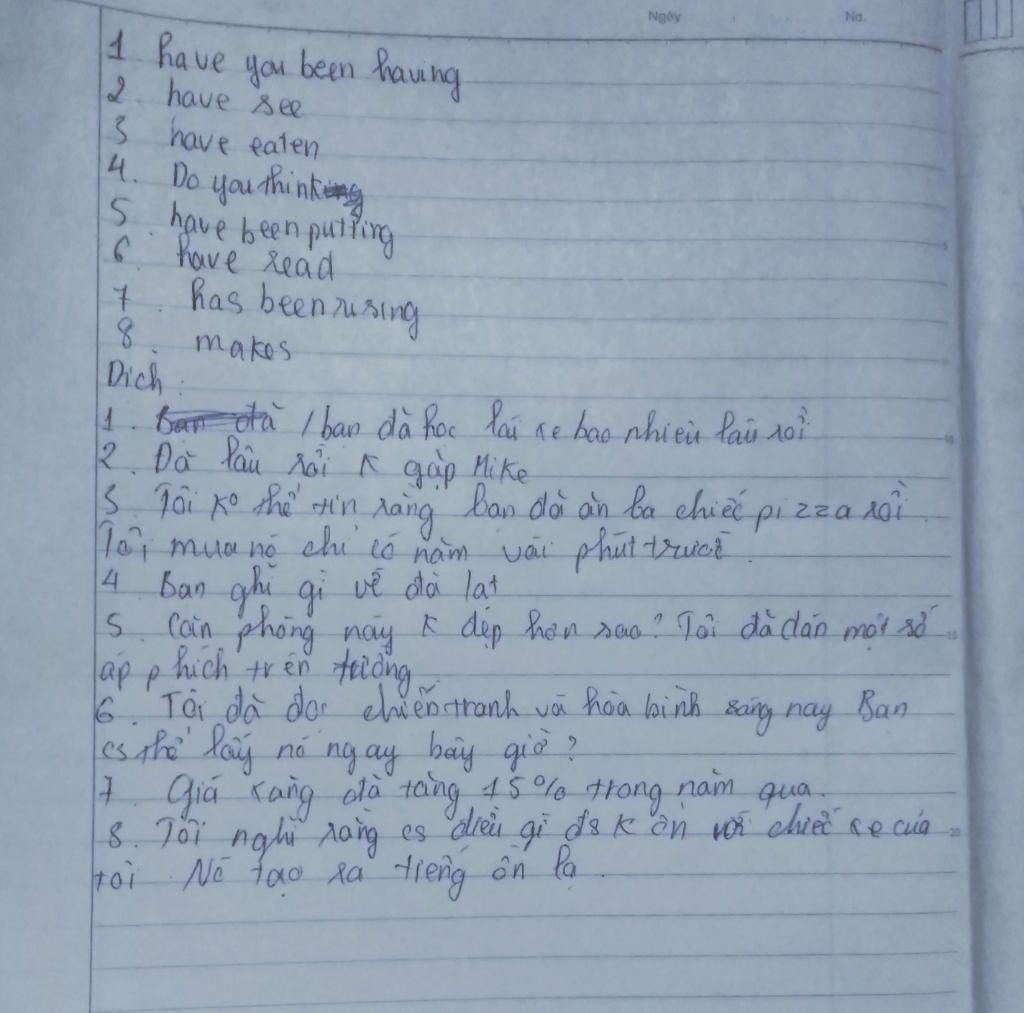 Ngày No.
1 have you been having
2. have see
3 have eaten
4. Do you think
5. have been putting
6. have read
7. has been rising
8. makes
Dịch.
1. /bạn đã học lái xe bao nhiêu lâu rồi
2. Đã lâu rồi k gặp Mike
3. Tôi ko thể tin rằng bạn đã ăn ba chiếc pizza rồi.
Tôi mua nó chỉ có năm vài phút trước
4 Bạn ghĩ gì về đà lạt
5. Căn phòng này k đẹp hơn sao? Tôi đã dán một số
áp phích trên tường.
6. Tôi đã đọc chiến tranh và hòa bình sáng nay Bạn
cs thể lấy nó ngay bây giờ?
7. Giá xăng đã tăng 15% trong năm qua.
8. Tôi nghĩ rằng cs điều gì đs k ổn với chiếc xe của
tôi Nó tạo ra tiếng ồn lạ.